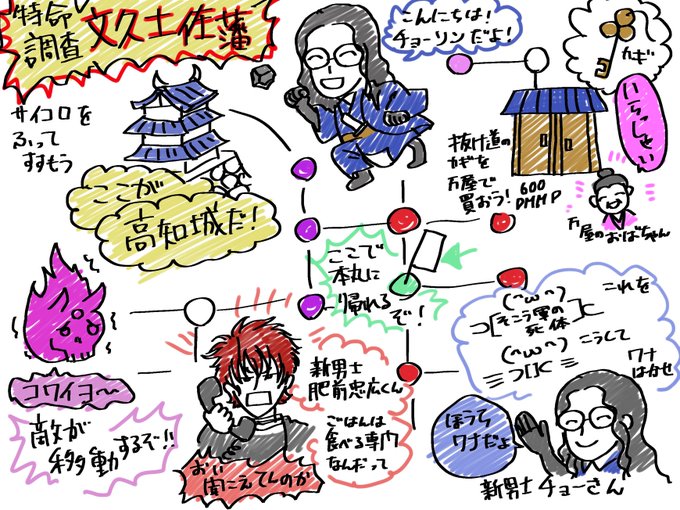 特命
調査
文久土佐藩
こんにちは!
チョーリンだよ!
カギ
サイコロを
ふって
すすもう
いらっしゃせぃん
ここが
高知城だ!
抜け道の
カギを
万屋で
買おう!
600
DMMP
万屋のおばちゃん
ここで
本丸に
帰れる
ぞ!
これを
(^ω^)
⊃[そこら辺の死体]⊂
(^ω^)
こうして
≡⊃[]⊂≡
ワナ
はかせ
コワイヨ〜
敵が
移動するぞ!!
新男士
肥前忠広くん
ごはんは
食べる専門
なんだって
おい
聞こえてんのか
ほうら
ワナだよ
新男士 チョーさん